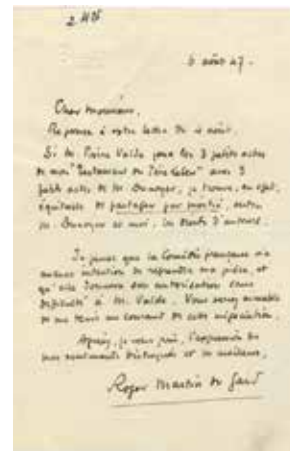 6 août 47.
Cher Monsieur,
Réponse à votre lettre du 4 août.
Si M. Pierre Valde joue les 3 petits actes
de mon "Testament du Père Leleu" avec 3
petits actes de M. je trouve, en effet,
équitable de partager par moitié, entre
M. et moi, les droits d'auteur.
Je pense que la Comédie française n'a
aucune intention de reprendre ma pièce, et
qu'elle donnera son autorisation sans
difficulté à M. Valde. Vous serez aimable
de me tenir au courant de cette négociation.
Agréez, je vous prie, l'expression de
mes sentiments distingués et les meilleurs,
Roger Martin du Gard